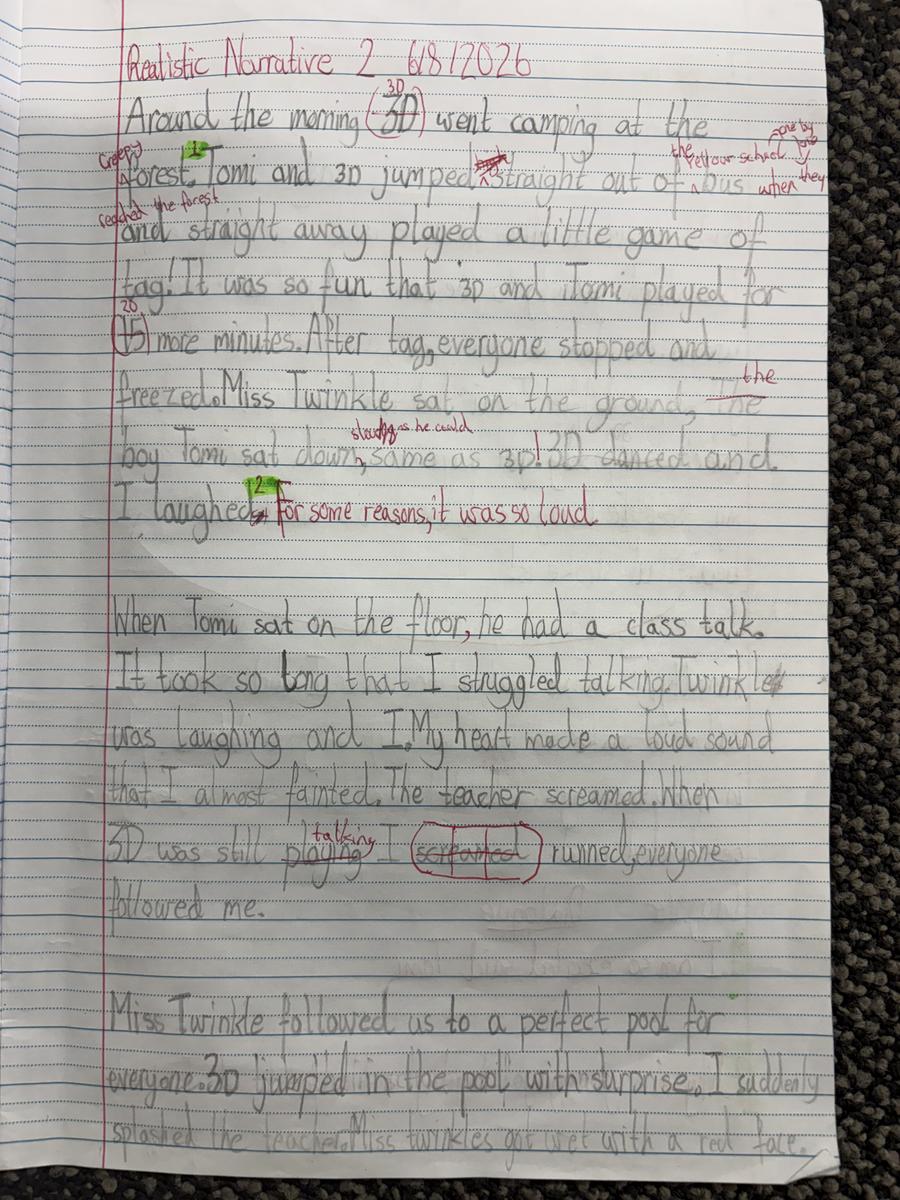 Realistic Narrative 2 6/8/2026
3D
Around the morning (3D) went camping at the
one by one
Creepy 1 the yellow school
forest. Tomi and 3D jumped straight out of bus when they
reached the forest
and straight away played a little game of
tag! It was so fun that 3D and Tomi played for
20
15 more minutes. After tag, everyone stopped and
freezed. Miss Twinkle sat on the ground, The
the
slowly as he could
boy Tomi sat down, same as 3D! 3D danced and
2
I laughed. For some reasons, it was so loud
When Tomi sat on the floor, he had a class talk.
It took so long that I struggled talking. Twinkle
was laughing and I. My heart made a loud sound
that I almost fainted. The teacher screamed. When
talking
3D was still playing I screamed runned, everyone
followed me.
Miss Twinkle followed us to a perfect pool for
everyone. 3D jumped in the pool with surprise. I suddenly
splashed the teacher. Miss twinkles got wet with a red face.